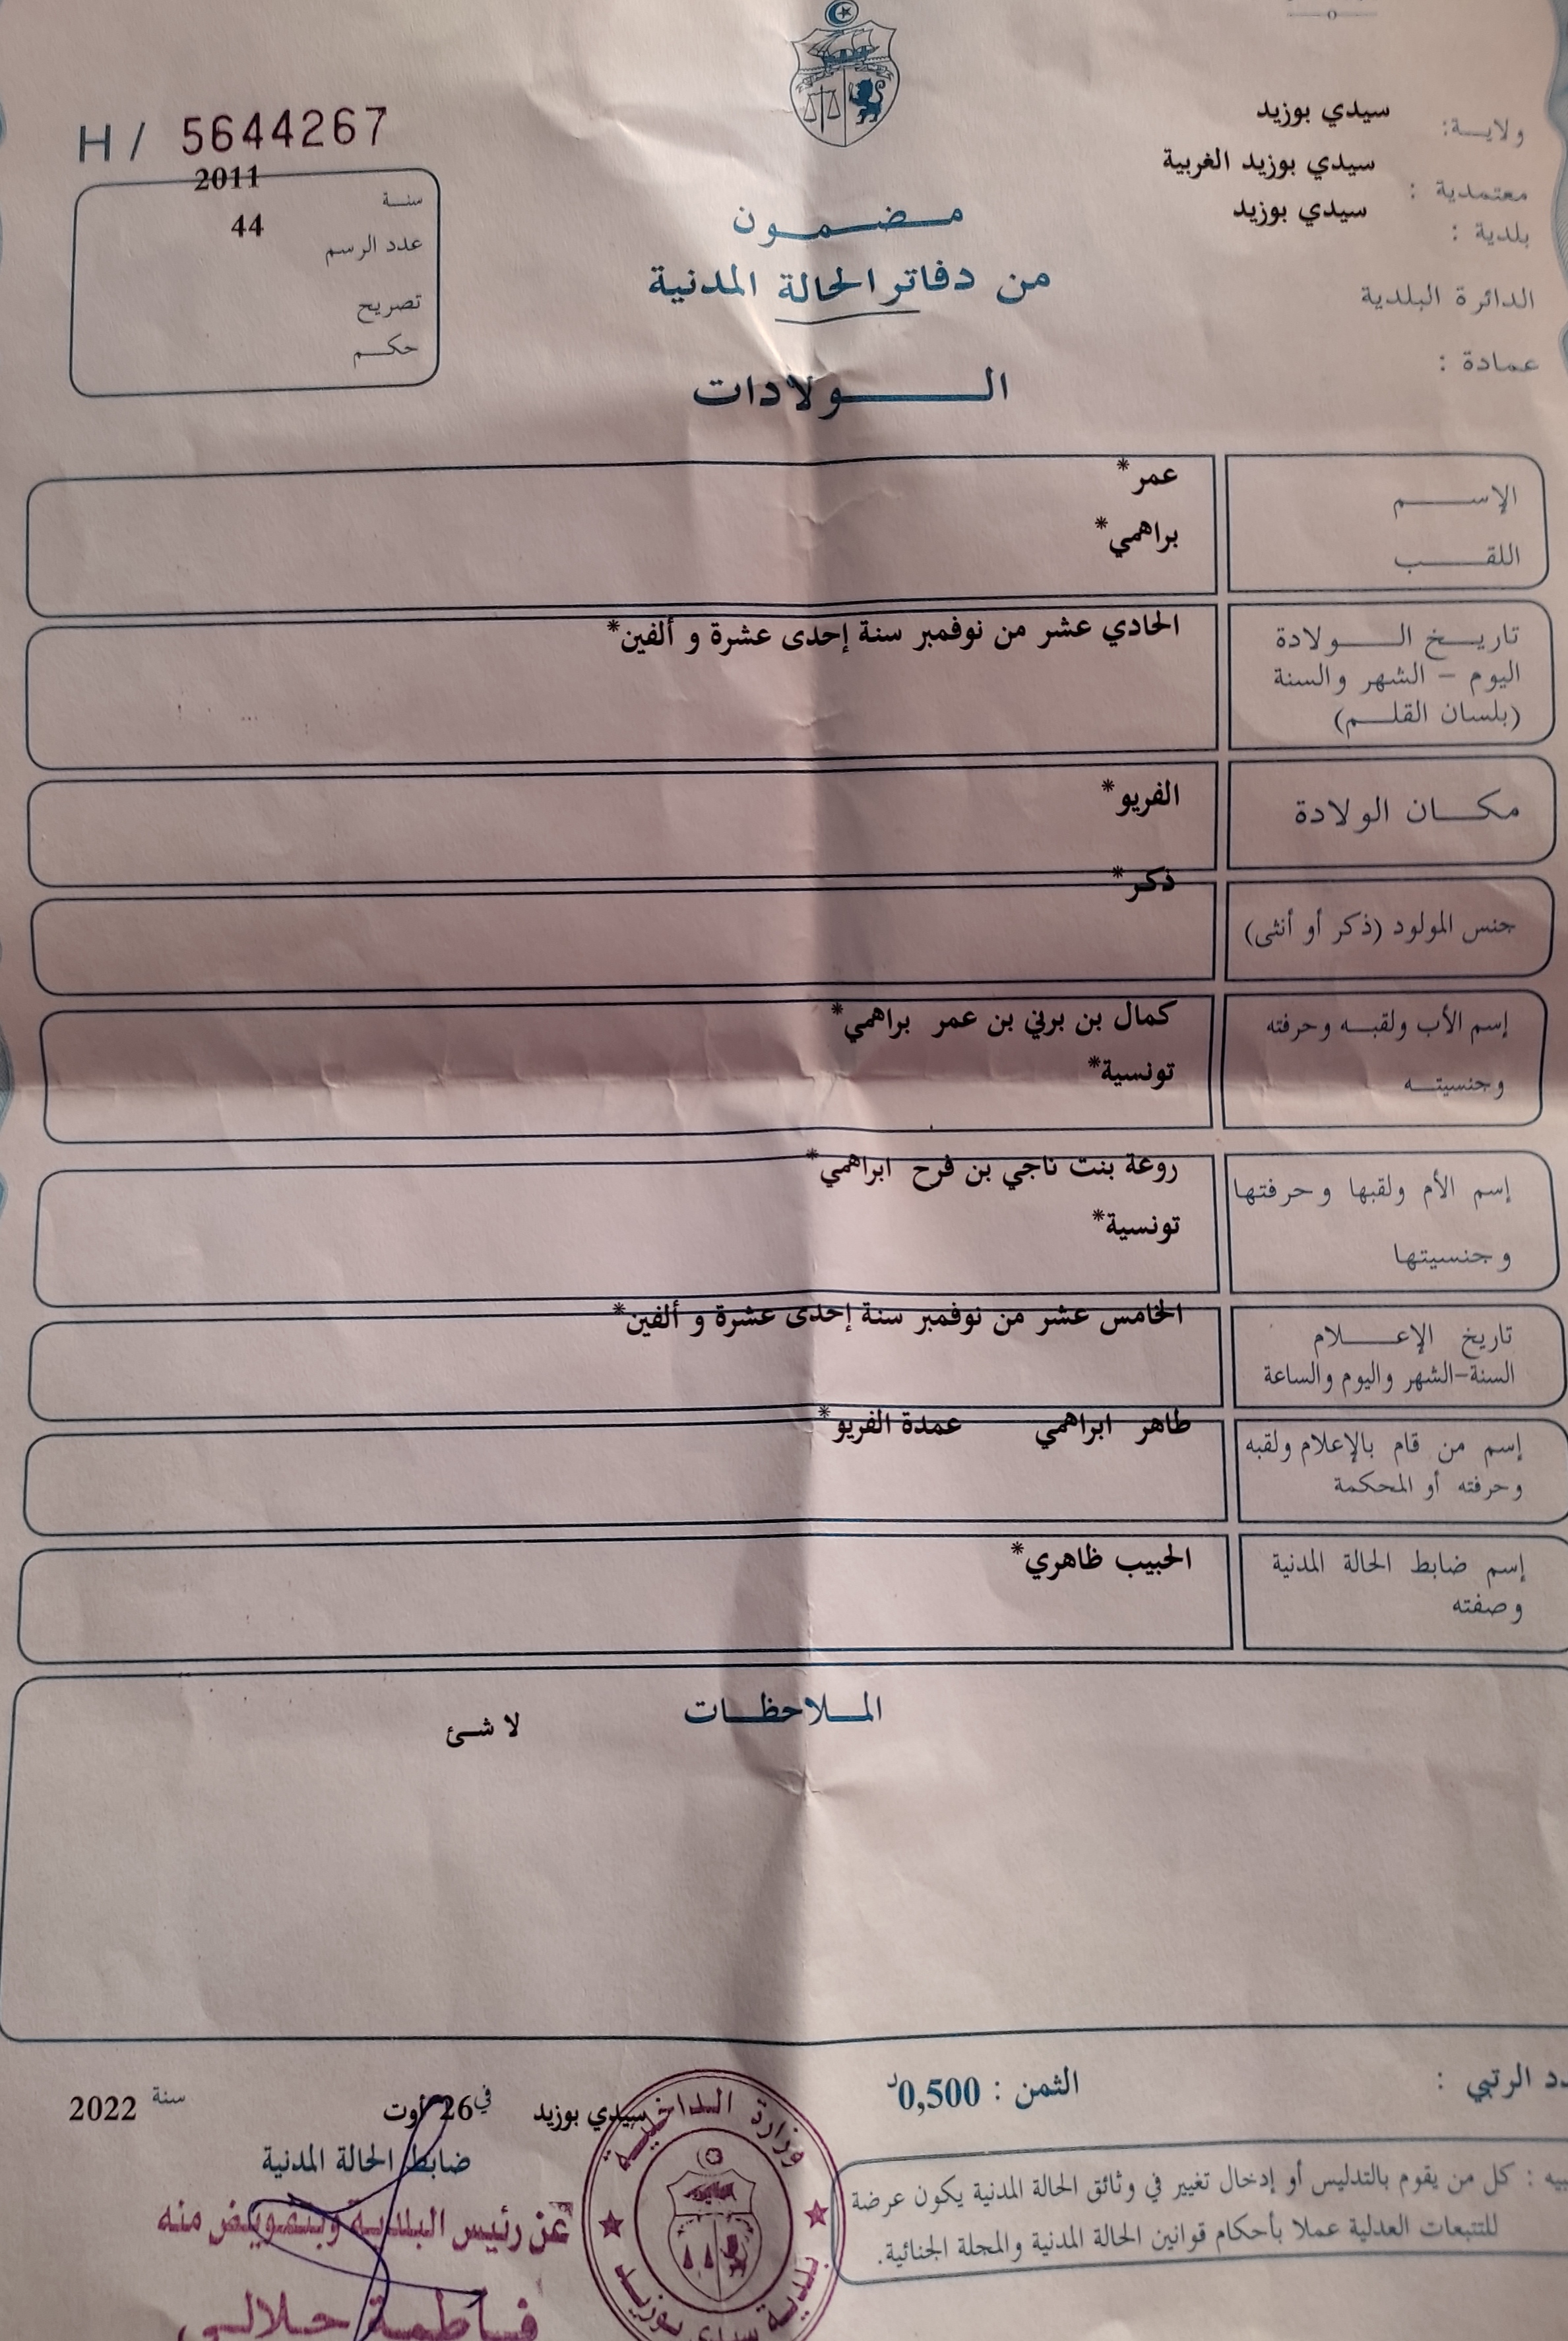 ولاية: سيدي بوزيد
معتمدية : سيدي بوزيد الغربية
بلدية : سيدي بوزيد
الدائرة البلدية
عمادة :
H / 5644267
سنة 2011
عدد الرسم 44
تصريح
حكم
مضمون
من دفاتر الحالة المدنية
الولادات
الإسم عمر*
اللقب براهمي*
تاريخ الولادة الحادي عشر من نوفمبر سنة إحدى عشرة و ألفين*
اليوم - الشهر والسنة
(بلسان القلم)
مكان الولادة الفريو*
جنس المولود (ذكر أو أنثى) ذكر*
إسم الأب ولقبه وحرفته كمال بن برني بن عمر براهمي*
وجنسيته تونسية*
إسم الأم ولقبها وحرفتها روعة بنت ناجي بن فرح ابراهمي*
وجنسيتها تونسية*
تاريخ الإعلام الخامس عشر من نوفمبر سنة إحدى عشرة و ألفين*
السنة-الشهر واليوم والساعة
إسم من قام بالإعلام ولقبه طاهر ابراهمي عمدة الفريو*
وحرفته أو المحكمة
إسم ضابط الحالة المدنية الحبيب ظاهري*
وصفته
الملاحظات
لا شئ
الرتبي :
الثمن : 0,500د
سيدي بوزيد في 26 أوت سنة 2022
ضابط الحالة المدنية
عن رئيس البلدية وبتفويض منه
فاطمة حلالي
وزارة الداخلية
بلدية سيدي بوزيد
كل من يقوم بالتدليس أو إدخال تغيير في وثائق الحالة المدنية يكون عرضة
للتتبعات العدلية عملا بأحكام قوانين الحالة المدنية والمجلة الجنائية.